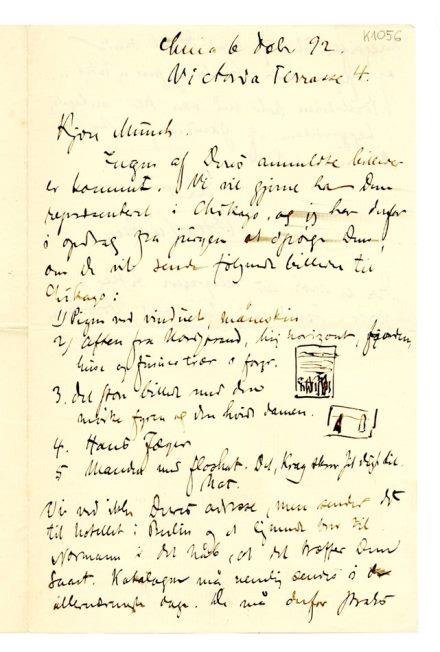 K1056
Chria 6 Dcbr 92.
Victoria Terrasse 4.
Kjære Munch.
Ingen af Deres anmeldte billeder
er kommet. Vi vil gjerne ha Dem
repræsenteret i Chikago, og jeg har derfor
i opdrag fra juryen at spørge Dem,
om De vil sende følgende billeder til
Chikago:
1) Pigen ved vinduet, måneskin
2) Aften fra Nordstrand, høj horizont, fjorden,
huse og furutrær i forgr.
3. det store billede med den
mørke fyren og den hvide damen.
4. Hans Jæger
5 Manden med floshat. Det,
hat.
Vi ved ikke Deres adresse, men sender det
til hotellet i Berlin og et lignende brev til
Normann i det håb, at det træffer Dem
snart. Katalogen må nemlig sendes i
allernærmeste dage. De må derfor straks